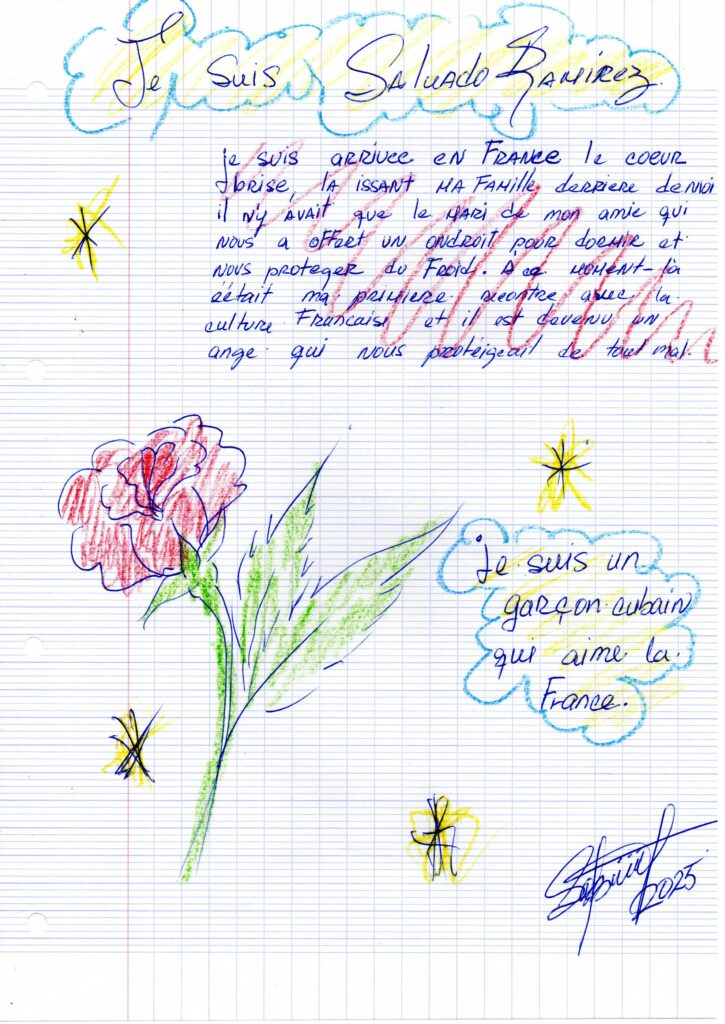 Je suis Salvado Ramirez.
je suis arrivee en France le coeur
brise, la issant ma famille derriere de moi
il n'y avait que le mari de mon amie qui
nous a offert un ondroit pour dormir et
nous proteger du Froid. À ce moment-là
c'était ma primiere recontre avec la
culture Francaise et il est devenu un
ange qui nous protéigeail de tout mal.
Je suis un
garçon cubain
qui aime la
France.
2025